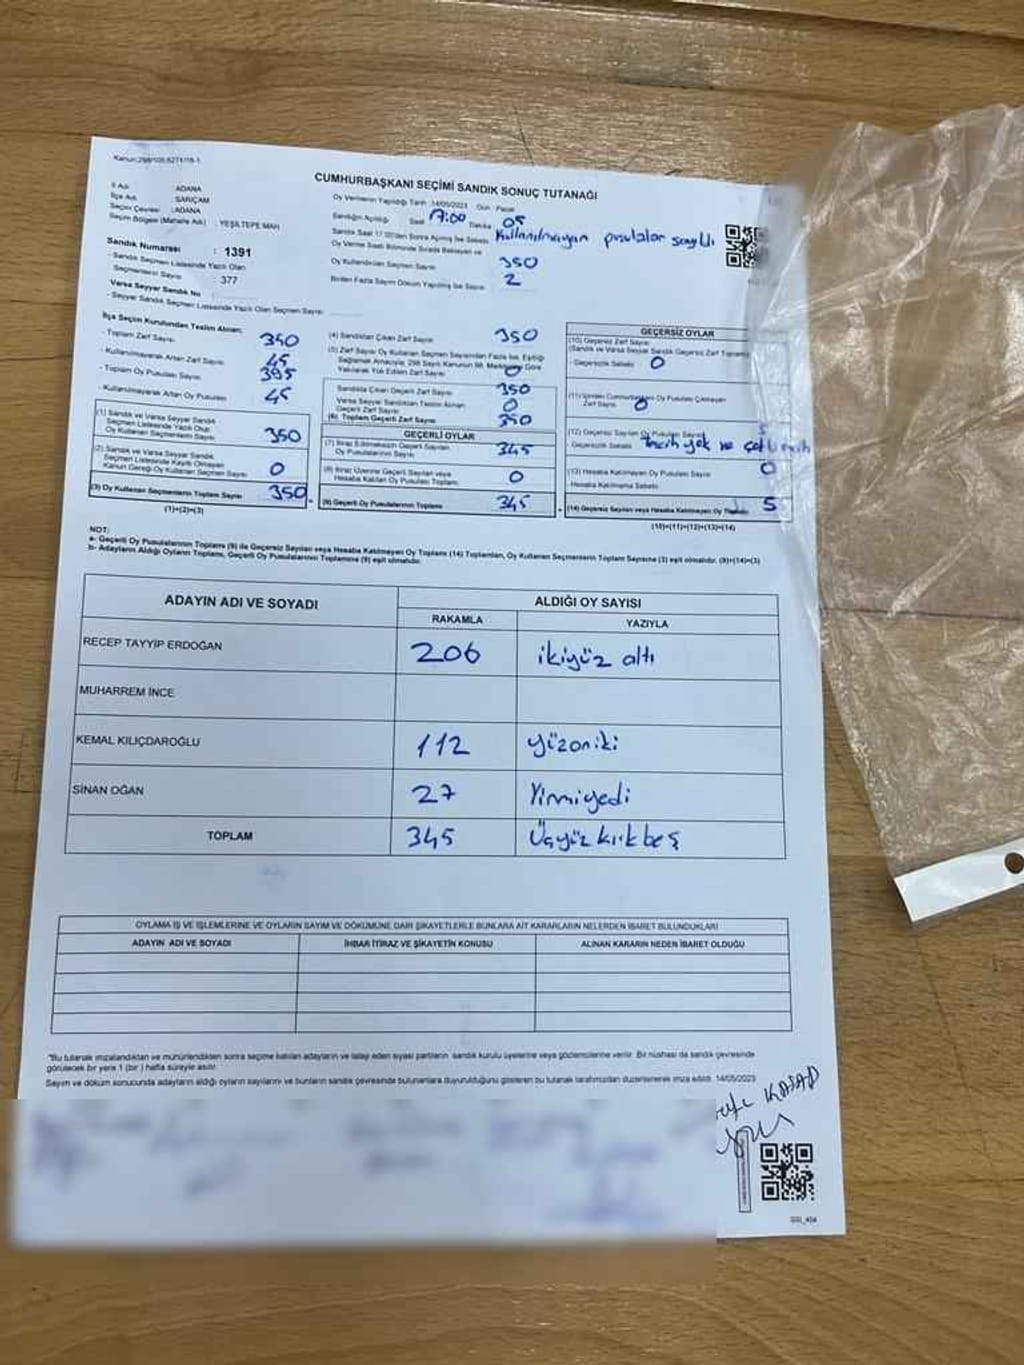 Kanun:298/105,6271/18-1
CUMHURBAŞKANI SEÇİMİ SANDIK SONUÇ TUTANAĞI
İl Adı : ADANA
İlçe Adı : SARIÇAM
Seçim Çevresi : ADANA
Seçim Bölgesi (Mahalle Adı) : YEŞİLTEPE MAH
Oy Vermenin Yapıldığı Tarih :14/05/2023 Gün : Pazar
Sandığın Açıldığı Saat 17:00 Dakika 05
Sandık Saat 17.00'den Sonra Açılmış İse Sebebi Kullanılmayan pusulalar sayıldı
Oy Verme Saati Bitiminde Sırada Bekleyen ve
Oy Kullandırılan Seçmen Sayısı 350
Birden Fazla Sayım Döküm Yapılmış İse Sayısı 2
Sandık Numarası : 1391
- Sandık Seçmen Listesinde Yazılı Olan
Seçmenlerin Sayısı : 377
Varsa Seyyar Sandık No
- Seyyar Sandık Seçmen Listesinde Yazılı Olan Seçmen Sayısı
İlçe Seçim Kurulundan Teslim Alınan;
- Toplam Zarf Sayısı 390
- Kullanılmayarak Artan Zarf Sayısı 45
- Toplam Oy Pusulası Sayısı 395
- Kullanılmayarak Artan Oy Pusulası 45
(1) Sandık ve Varsa Seyyar Sandık
Seçmen Listesinde Yazılı Olup
Oy Kullanan Seçmenlerin Sayısı 350
(2) Sandık ve Varsa Seyyar Sandık
Seçmen Listesinde Kayıtlı Olmayan
Kanun Gereği Oy Kullanan Seçmen Sayısı 0
(3) Oy Kullanan Seçmenlerin Toplam Sayısı 350
(1)+(2)=(3)
(4) Sandıktan Çıkan Zarf Sayısı 350
(5) Zarf Sayısı Oy Kullanan Seçmen Sayısından Fazla İse, Eşitliği
Sağlamak Amacıyla; 298 Sayılı Kanunun 98. Maddesine Göre
Yakılarak Yok Edilen Zarf Sayısı 0
Sandıkta Çıkan Geçerli Zarf Sayısı 350
Varsa Seyyar Sandıktan Teslim Alınan
Geçerli Zarf Sayısı 0
(6) Toplam Geçerli Zarf Sayısı 350
GEÇERLİ OYLAR
(7) İtiraz Edilmeksizin Geçerli Sayılan
Oy Pusulalarının Sayısı 345
(8) İtiraz Üzerine Geçerli Sayılan veya
Hesaba Katılan Oy Pusulaları Toplamı 0
(9) Geçerli Oy Pusulalarının Toplamı 345
GEÇERSİZ OYLAR
(10) Geçersiz Zarf Sayısı
(Sandık ve Varsa Seyyar Sandık Geçersiz Zarf Toplamı)
- Geçersizlik Sebebi 0
(11) İçinden Cumhurbaşkanı Oy Pusulası Çıkmayan
Zarf Sayısı 0
(12) Geçersiz Sayılan Oy Pusulası Sayısı 5
- Geçersizlik Sebebi tercih yok ve
(13) Hesaba Katılmayan Oy Pusulası Sayısı 0
Hesaba Katılmama Sebebi
(14) Geçersiz Sayılan veya Hesaba Katılmayan Oy Toplamı 5
(10)+(11)+(12)+(13)=(14)
NOT:
a- Geçerli Oy Pusulalarının Toplamı (9) ile Geçersiz Sayılan veya Hesaba Katılmayan Oy Toplamı (14) Toplamları, Oy Kullanan Seçmenlerin Toplam Sayısına (3) eşit olmalıdır. (9)+(14)=(3)
b- Adayların Aldığı Oyların Toplamı, Geçerli Oy Pusulalarının Toplamına (9) eşit olmalıdır.
ADAYIN ADI VE SOYADI ALDIĞI OY SAYISI
RAKAMLA YAZIYLA
RECEP TAYYİP ERDOĞAN 206 ikiyüz altı
MUHARREM İNCE
KEMAL KILIÇDAROĞLU 112 yüzoniki
SİNAN OĞAN 27 Yirmiyedi
TOPLAM 345 Üçyüz kırkbeş
OYLAMA İŞ VE İŞLEMLERİNE VE OYLARIN SAYIM VE DÖKÜMÜNE DAİR ŞİKAYETLERLE BUNLARA AİT KARARLARIN NELERDEN İBARET BULUNDUKLARI
ADAYIN ADI VE SOYADI İHBAR İTİRAZ VE ŞİKAYETİN KONUSU ALINAN KARARIN NEDEN İBARET OLDUĞU
"Bu tutanak imzalandıktan ve mühürlendikten sonra seçime katılan adayların ve talep eden siyasi partilerin sandık kurulu üyelerine veya gözlemcilerine verilir. Bir nüshası da sandık çevresinde
görülecek bir yere 1 (bir) hafta süreyle asılır.
Sayım ve döküm sonucunda adayların aldığı oyların sayılarını ve bunların sandık çevresinde bulunanlara duyurulduğunu gösteren bu tutanak tarafımızdan düzenlenerek imza edildi. 14/05/2023